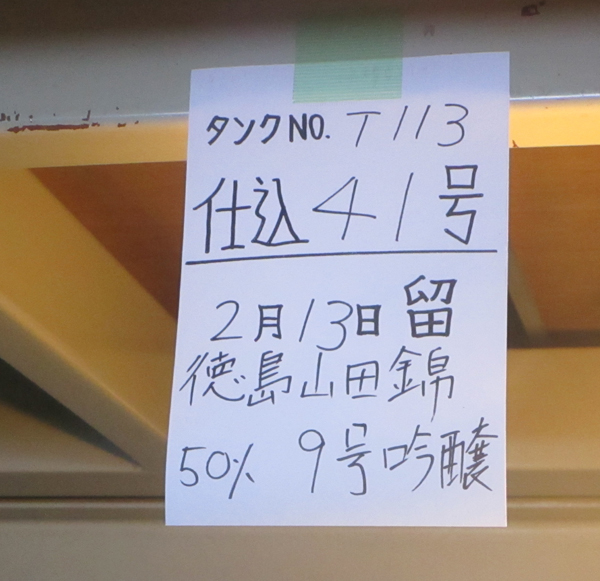 タンクNO. T113
仕込41号
2月13日留
徳島山田錦
50% 9号吟醸